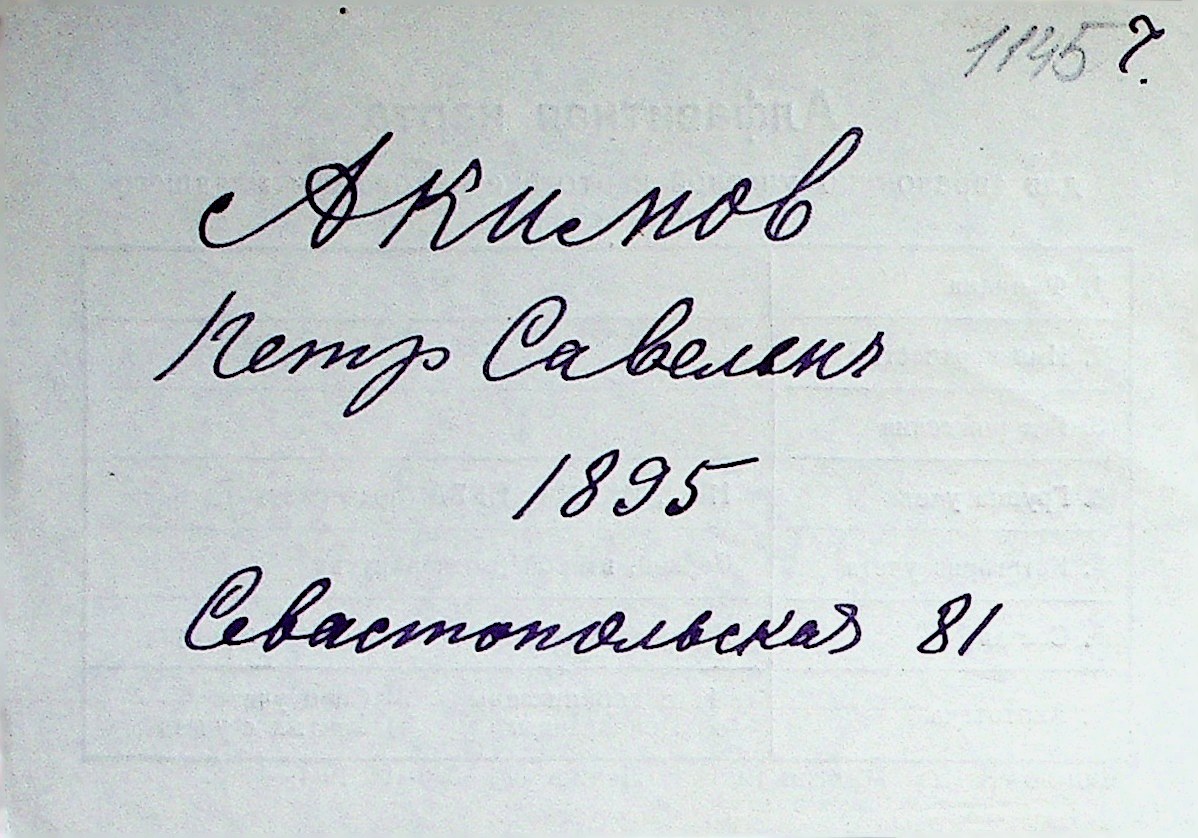 1145 г.
Акимов
Петр Савельич
1895
Севастопольская 81